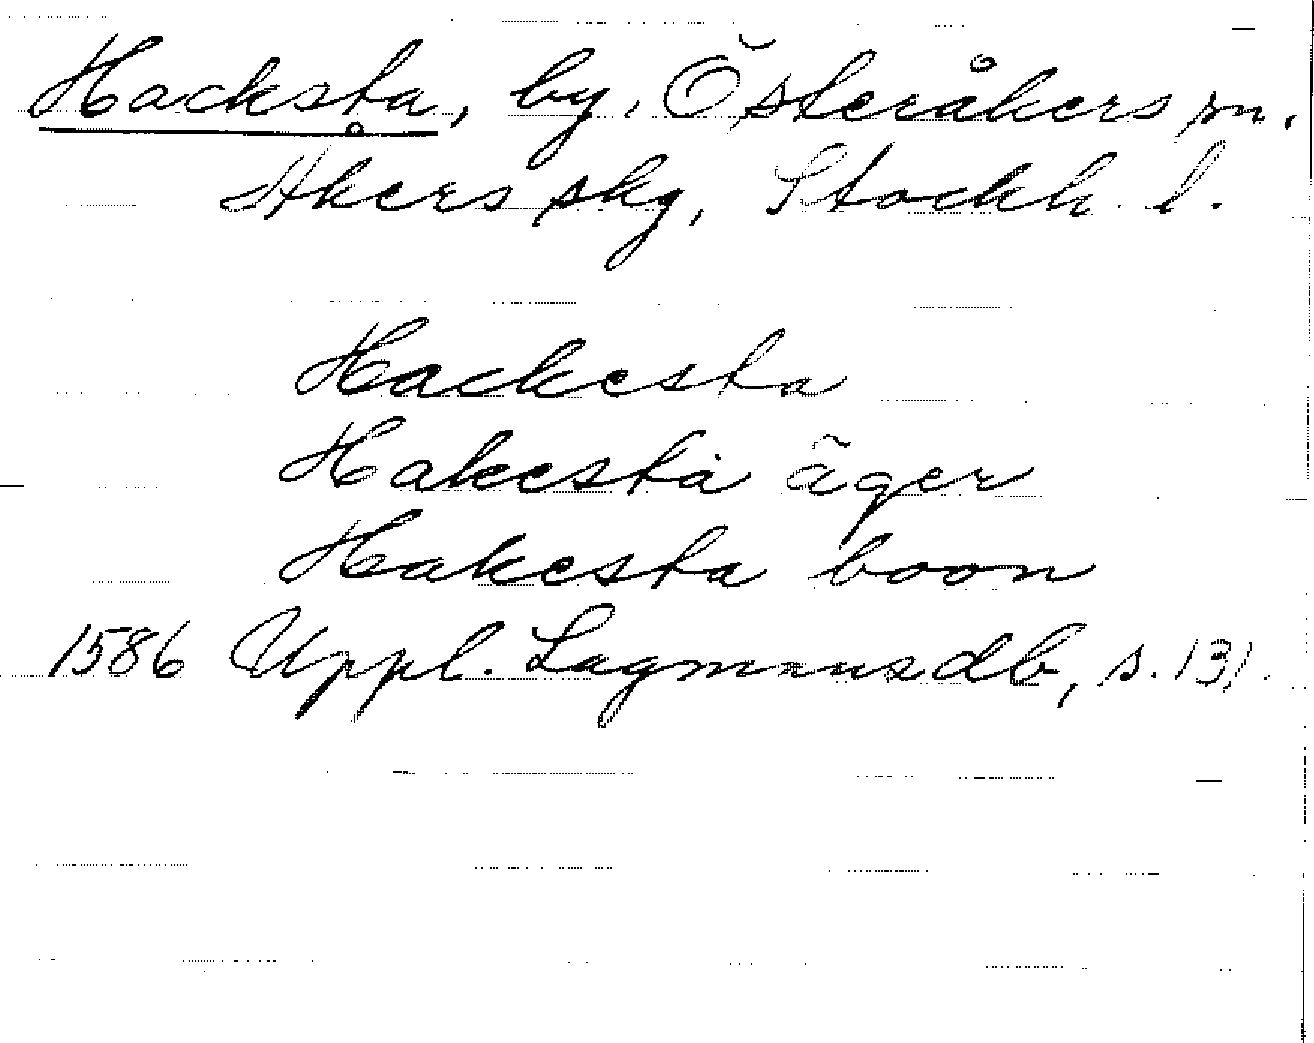 Hacksta, by, Österåkers sn.
Åkers skg, Stockh. l.
Hackesta
Hakesta äger
Hakesta boon
1586 Uppl. Lagmansdb, s. 131.